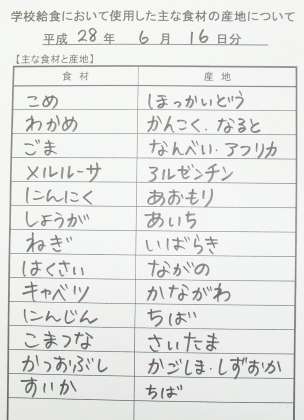 学校給食において使用した主な食材の産地について
平成 28 年 6 月 16 日分
【主な食材と産地】
食材 産地
こめ ほっかいどう
わかめ かんこく．なると
ごま なんべい．アフリカ
メルルーサ アルゼンチン
にんにく あおもり
しょうが あいち
ねぎ いばらき
はくさい ながの
キャベツ かながわ
にんじん ちば
こまつな さいたま
かつおぶし かごしま．しずおか
すいか ちば